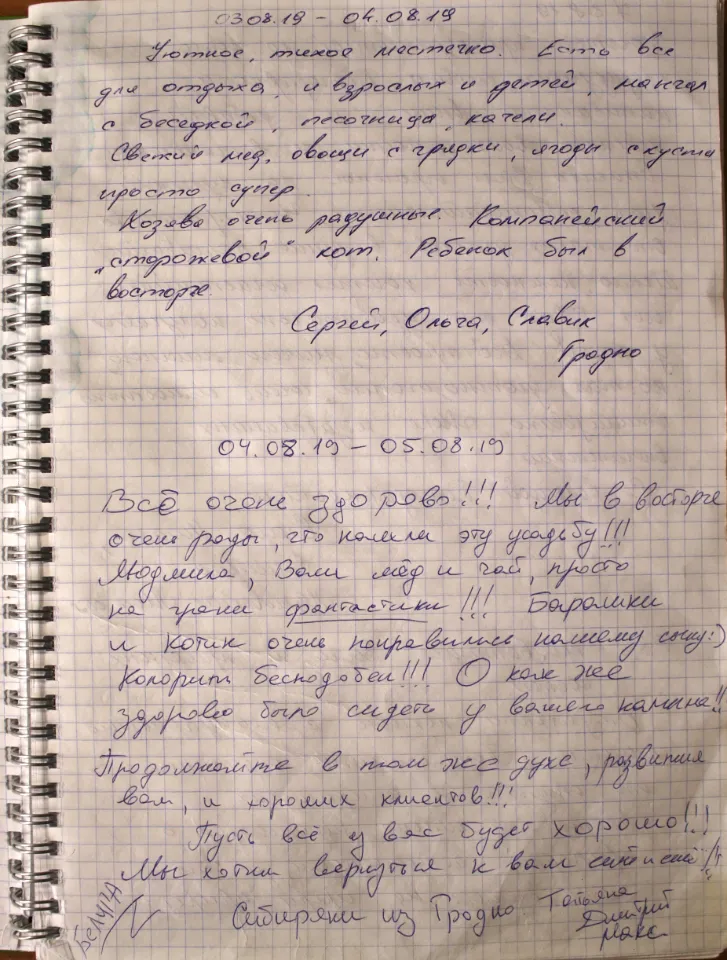 03.08.19 – 04.08.19
Уютное, тихое местечко. Есть все
для отдыха, и взрослых и детей, мангал
с беседкой, песочница, качели.
Свежий мед, овощи с грядки, ягоды с куста
просто супер.
Хозява очень радушные. Компанейский
„сторожевой" кот. Ребенок был в
восторге.
Сергей, Ольга, Славик
Гродно
04.08.19 – 05.08.19
Всё очень здорово!!! Мы в восторге
очень рады, что нашли эту усадьбу!!!
Людмила, Ваш мёд и чай, просто
на грани фантастики!!! Баранчики
и Котик очень понравились нашему сыну:)
Колорит бесподобен!!! О как же
здорово было сидеть у вашего камина!!
Продолжайте в том же духе, развития
вам, и хороших клиентов!!!
Пусть всё у вас будет хорошо!!!
Мы хотим вернуться к вам ещё и ещё!!!
Сибиряки из Гродно Татьяна
Дмитрий
Макс
БЕЛУГА